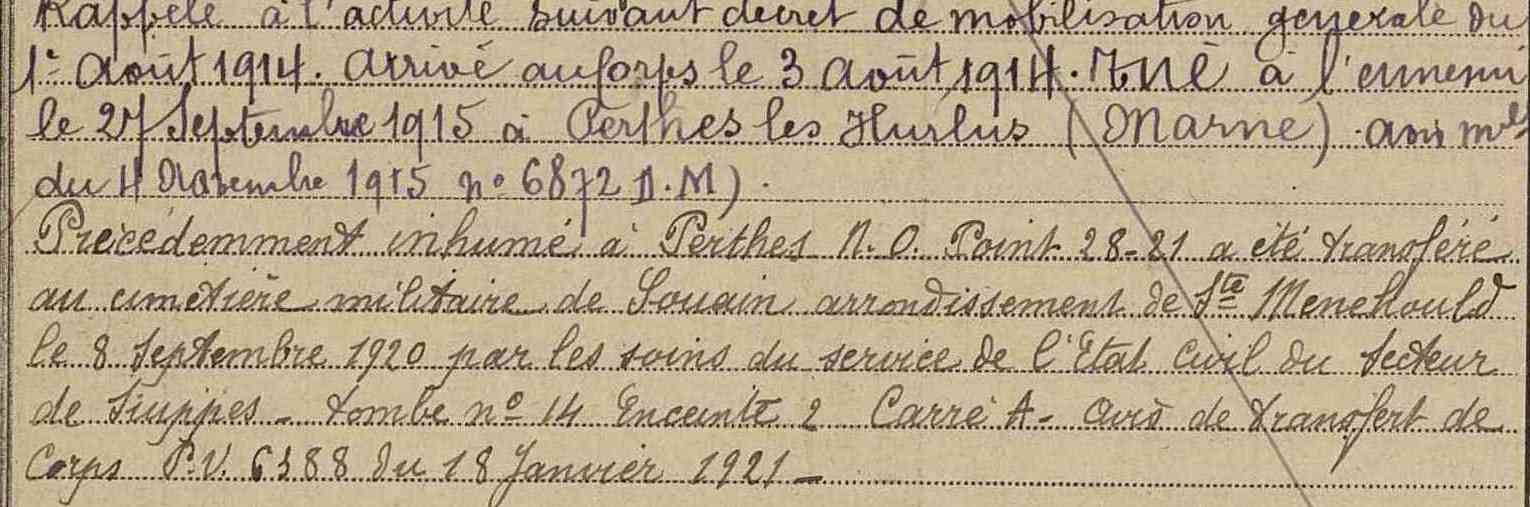 Rappelé à l'activité suivant décret de mobilisation générale du
1er Août 1914. Arrivé au Corps le 3 Août 1914. Tué à l'ennemi
le 27 Septembre 1915 à Perthes les Hurlus (Marne) avis mel
du 4 Novembre 1915 no 6872 D.M).
Précédemment inhumé à Perthes N.O. Point 28-21 a été transféré
au cimetière militaire de Souain arrondissement de Ste Menehould
le 8 Septembre 1920 par les soins du service de l'Etat Civil du Secteur
de Suippes - tombe no 14 Enceinte 2 Carré A - Avis de transfert de
Corps P.V. 6388 du 18 Janvier 1921 -